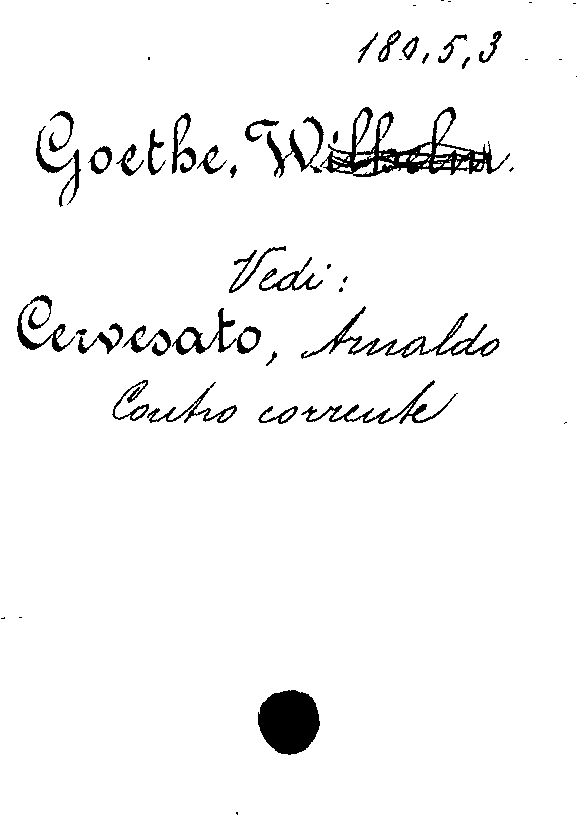 180.5,3
Goethe, W.
Vedi:
Cervesato, Arnaldo
Contro corrente